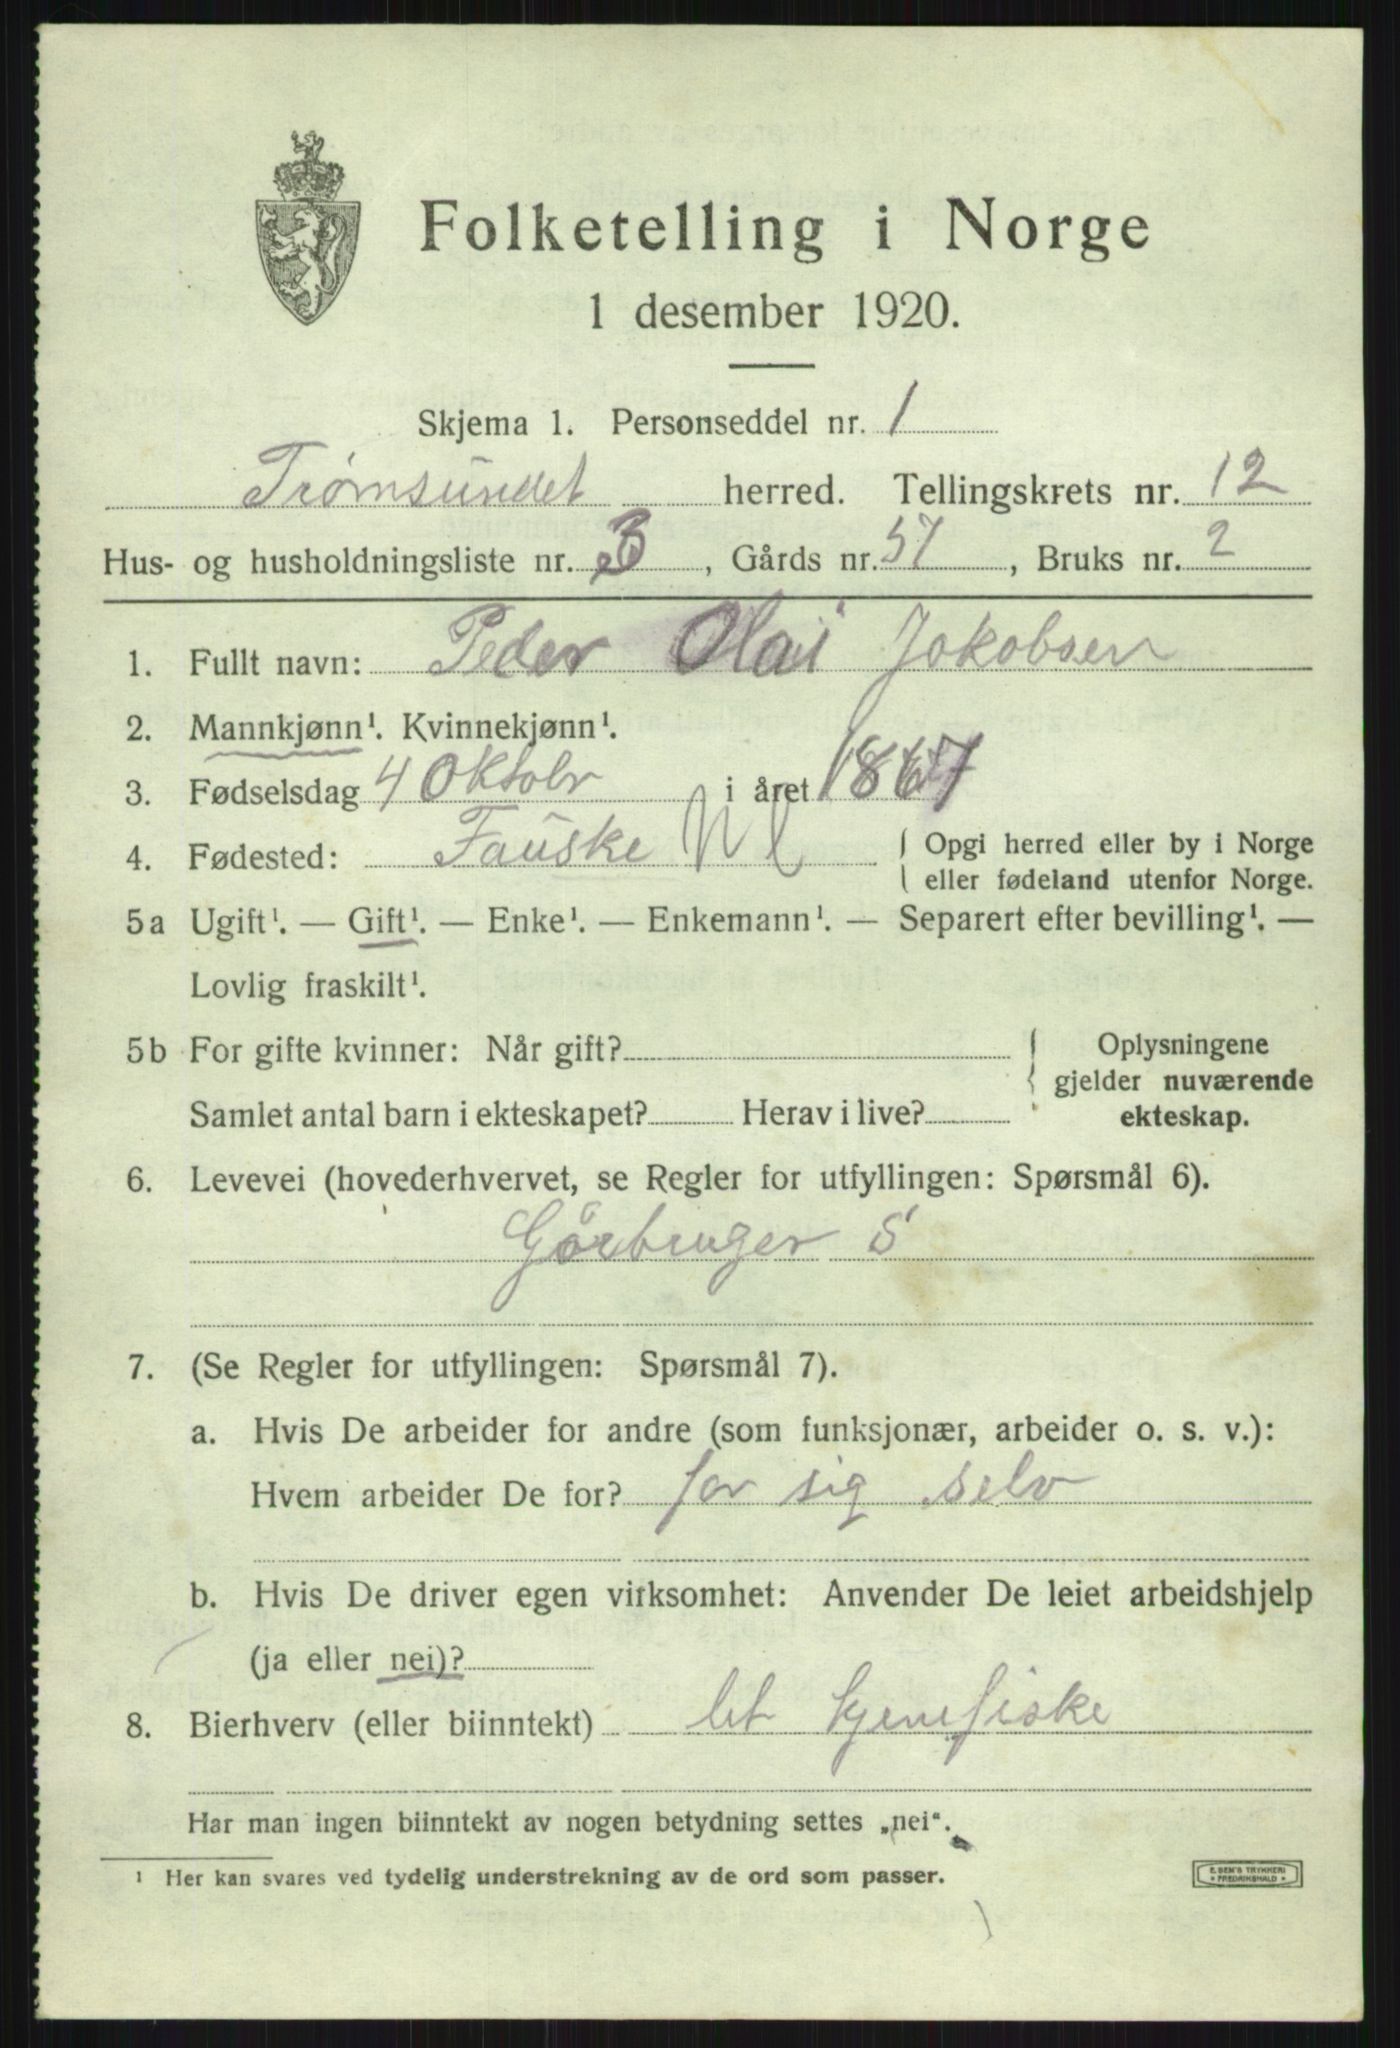 Folketelling i Norge
1 desember 1920.
Skjema 1. Personseddel nr. 1
Trømsundet herred. Tellingskrets nr. 12
Hus- og husholdningsliste nr. 3, Gårds nr. 57, Bruks nr. 2
1. Fullt navn: Peder Olai Jakobsen
2. Mannkjønn¹. Kvinnekjønn¹.
3. Fødselsdag 4 Oktobr i året 1867
4. Fødested: Fauske Nl { Opgi herred eller by i Norge
eller fødeland utenfor Norge.
5a Ugift¹. — Gift¹. — Enke¹. — Enkemann¹. — Separert efter bevilling¹. —
Lovlig fraskilt¹.
5b For gifte kvinner: Når gift? { Oplysningene
gjelder nuværende
Samlet antal barn i ekteskapet? Herav i live? ekteskap.
6. Levevei (hovederhvervet, se Regler for utfyllingen: Spørsmål 6).
Gårbruger S
7. (Se Regler for utfyllingen: Spørsmål 7).
a. Hvis De arbeider for andre (som funksjonær, arbeider o. s. v.):
Hvem arbeider De for? for sig selv
b. Hvis De driver egen virksomhet: Anvender De leiet arbeidshjelp
(ja eller nei)?
8. Bierhverv (eller biinntekt) let hjemefiske
Har man ingen biinntekt av nogen betydning settes „nei“.
¹ Her kan svares ved tydelig understrekning av de ord som passer.
E. SEM'S TRYKKERI
* FREDRIKSHALD *